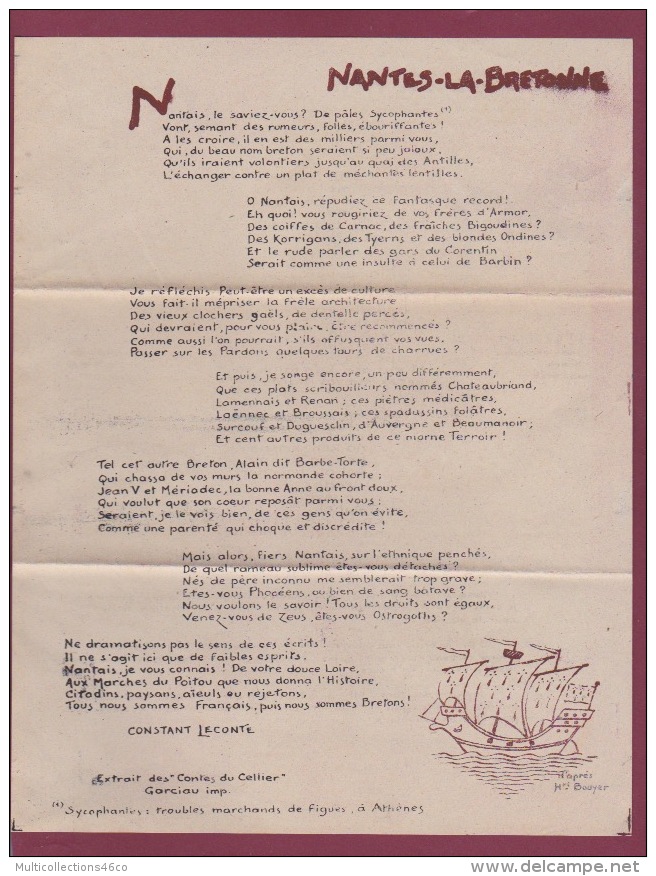 NANTES-LA-BRETONNE
Nantais, le saviez-vous? De pâles Sycophantes (1)
Vont, semant des rumeurs, folles, ébouriffantes!
A les croire, il en est des milliers parmi vous,
Qui, du beau nom breton seraient si peu jaloux,
Qu'ils iraient volontiers jusqu'au quai des Antilles,
L'échanger contre un plat de méchantes lentilles.
O Nantais, répudiez ce fantasque record!
Eh quoi! vous rougiriez de vos frères d'Armor,
Des coiffes de Carnac, des fraîches Bigoudines?
Des Korrigans, des Tyerns et des blondes Ondines?
Et le rude parler des gars du Corentin
Serait comme une insulte à celui de Barbin?
Je réfléchis Peut-être un excès de culture
Vous fait-il mépriser la frêle architecture
Des vieux clochers gaëls, de dentelle percés,
Qui devraient, pour vous plaire, être recommencés?
Comme aussi l'on pourrait, s'ils offusquent vos vues,
Passer sur les Pardons quelques tours de charrues?
Et puis, je songe encore, un peu différemment,
Que ces plats scribouilleurs nommés Chateaubriand,
Lamennais et Renan; ces piètres médicâtres,
Laënnec et Broussais; ces spadassins folâtres,
Surcouf et Duguesclin, d'Auvergne et Beaumanoir;
Et cent autres produits de ce morne Terroir!
Tel cet autre Breton, Alain dit Barbe-Torte,
Qui chassa de vos murs la normande cohorte;
Jean V et Mériadec, la bonne Anne au front doux,
Qui voulut que son coeur reposât parmi vous;
Seraient, je le vois bien, de ces gens qu'on évite,
Comme une parenté qui choque et discrédite!
Mais alors, fiers Nantais, sur l'ethnique penchés,
De quel rameau sublime êtes-vous détachés?
Nés de père inconnu me semblerait trop grave;
Etes-vous Phocéens, ou bien de sang batave?
Nous voulons le savoir! Tous les druits sont égaux,
Venez-vous de Zeus, êtes-vous Ostrogoths?
Ne dramatisons pas le sens de ces écrits!
Il ne s'agit ici que de faibles esprits.
Nantais, je vous connais! De votre douce Loire,
Aux Marches du Poitou que nous donna l'Histoire,
Citadins, paysans, aïeuls ou rejetons,
Tous nous sommes Français, puis nous sommes Bretons!
CONSTANT LECONTE
Extrait des "Contes du Cellier"
Garciau imp.
d'après
Hri Bouyer
(1) Sycophantes: troubles marchands de figues, à Athènes
Multicollections46co
delcampe.net